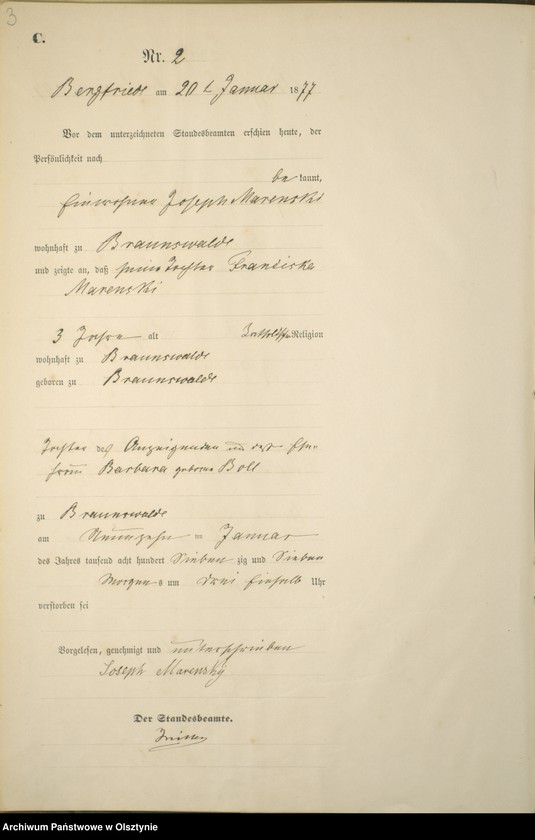 3
C.
Nr. 2
Bergfriede am 20 t Januar 1877
Vor dem unterzeichneten Standesbeamten erschien heute, der
Persönlichkeit nach
be kannt,
Einwohner Joseph Marenski
wohnhaft zu Braunswalde
und zeigte an, daß seine Tochter Franziska
Marenski
3 Jahre alt katholischer Religion
wohnhaft zu Braunswalde
geboren zu Braunswalde
Tochter des Anzeigenden und dessen Ehe-
frau Barbara geborene Boll
zu Braunswalde
am Neunzehn ten Januar
des Jahres tausend acht hundert Sieben zig und Sieben
Morgen s um drei einhalb Uhr
verstorben sei
Vorgelesen, genehmigt und unterschrieben
Joseph Marensky
Der Standesbeamte.
Archiwum Państwowe w Olsztynie